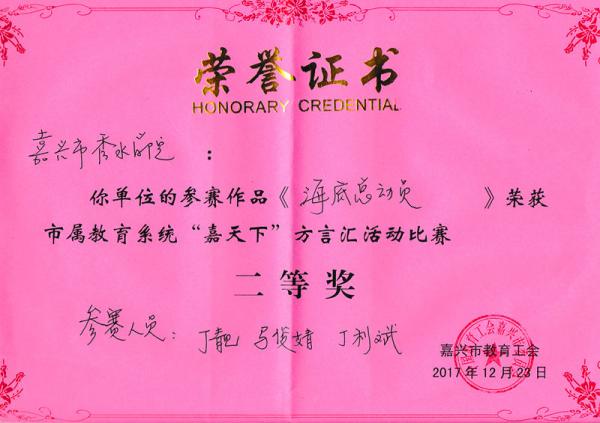 荣誉证书
HONORARY CREDENTIAL
嘉兴市秀水学院：
你单位的参赛作品《海底总动员》荣获
市属教育系统“嘉天下”方言汇活动比赛
二等奖
参赛人员：丁靓 马俊婧 丁利斌
嘉兴市教育工会
2017年12月23日